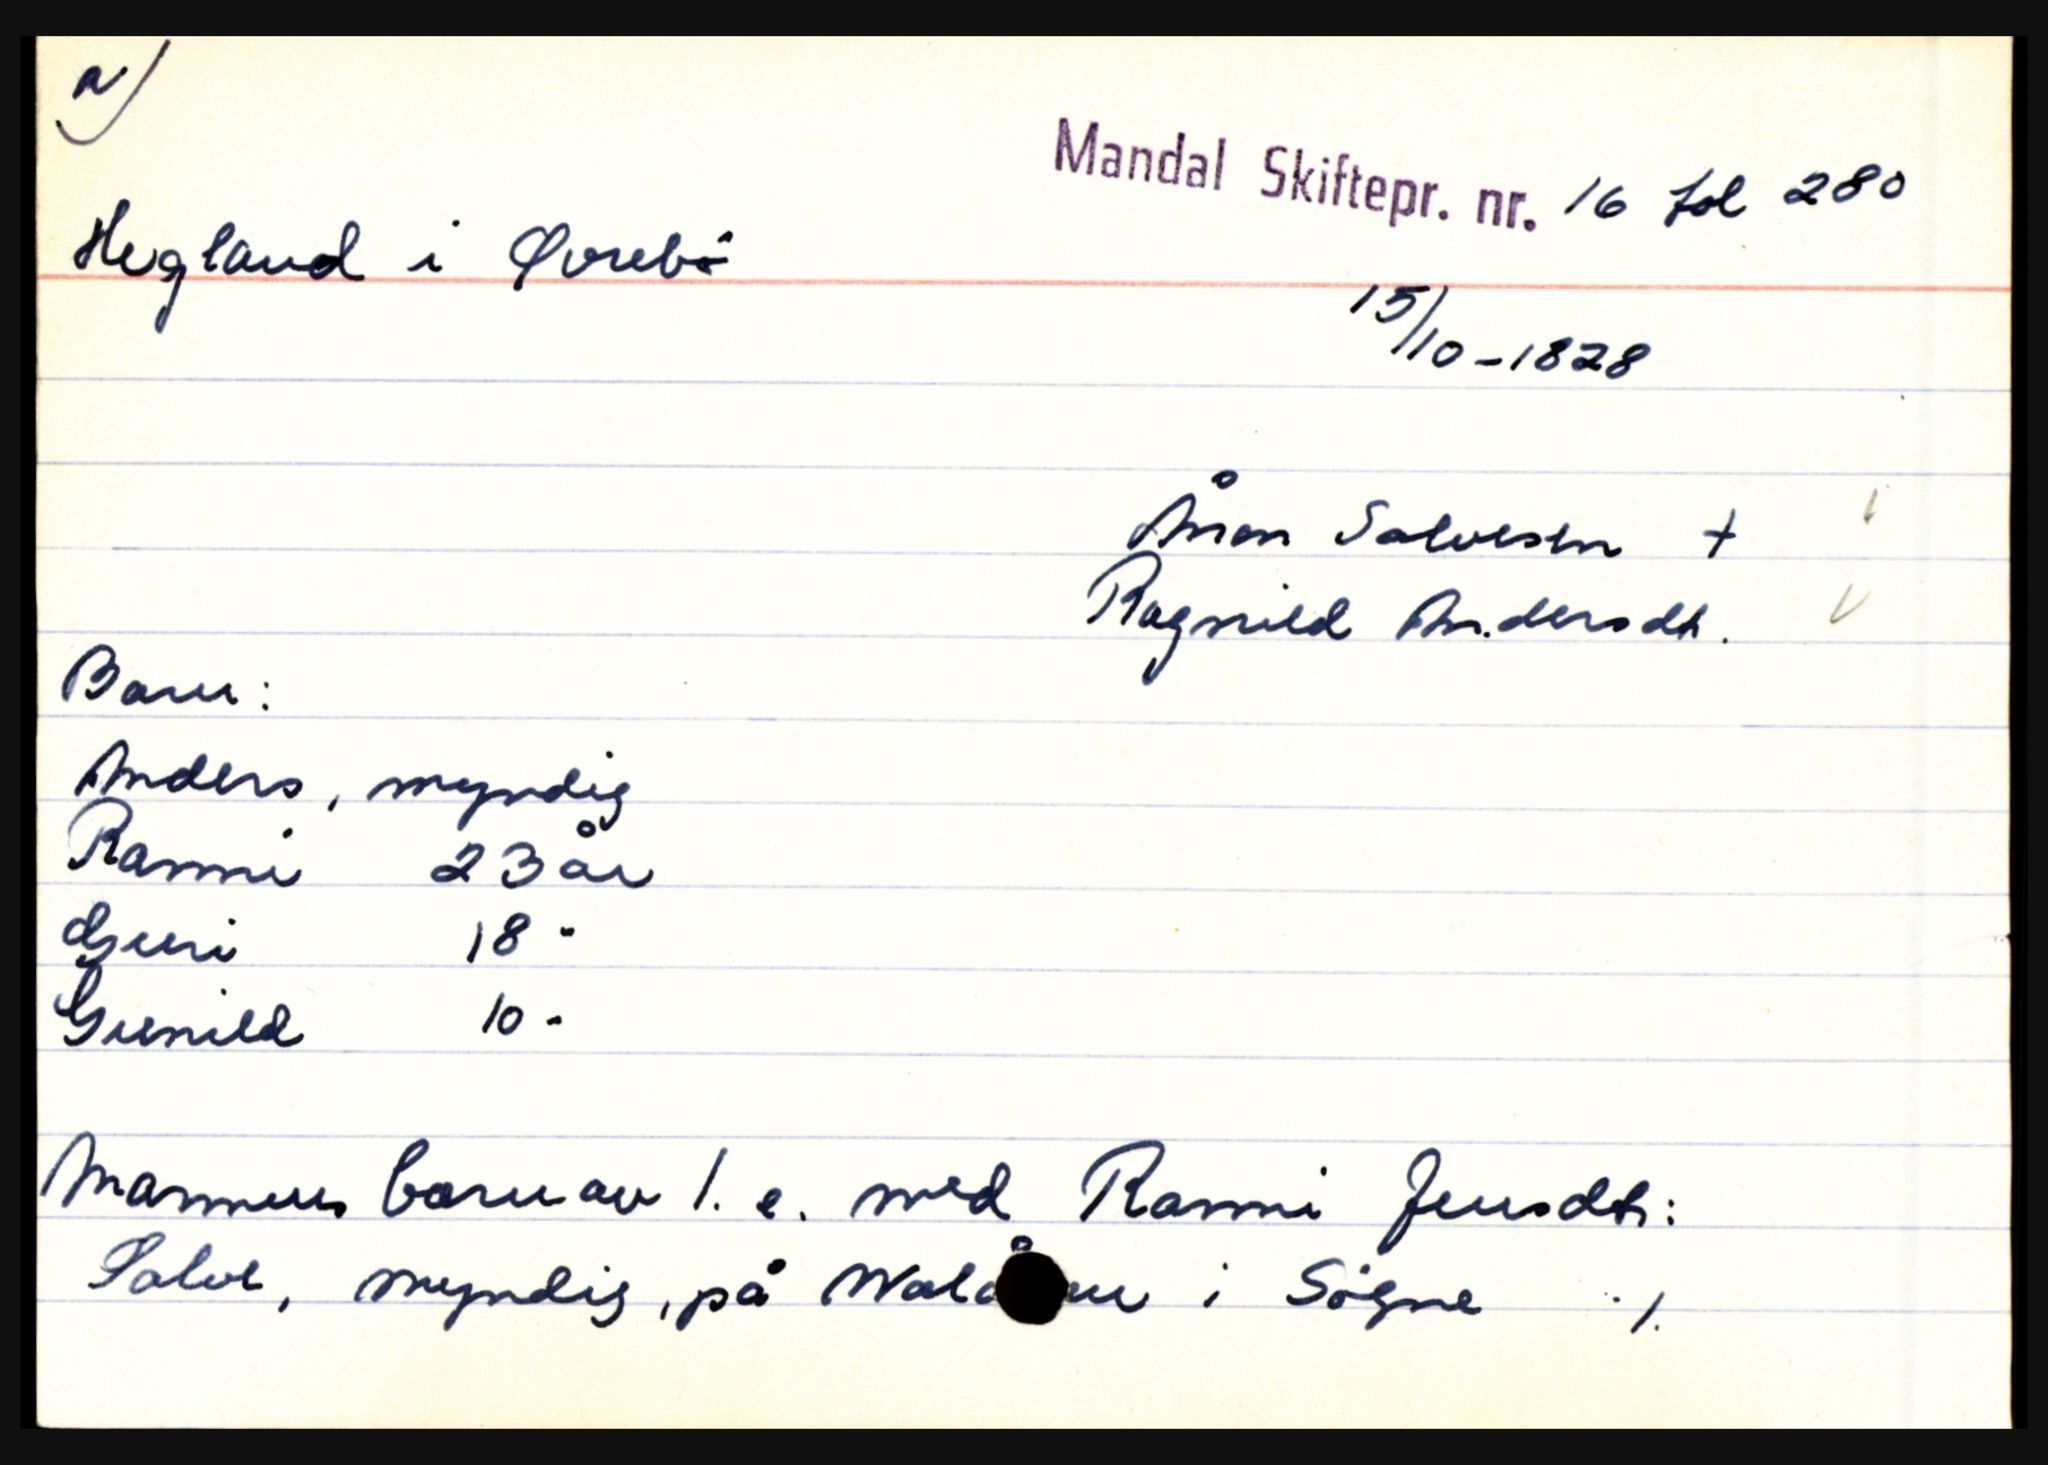 a)
Mandal Skiftepr. nr. 16 fol 280
Hegland i Øvrebø
15/10-1828
Ånon Salvesen +
Ragnild Andersdt.
Barn:
Anders, myndig
Ranni 23 år
Guri 18 "
Gunild 10 "
Mannens barn av 1. e. med Ranni Jensdt:
Salve, myndig, på i Søgne ./.